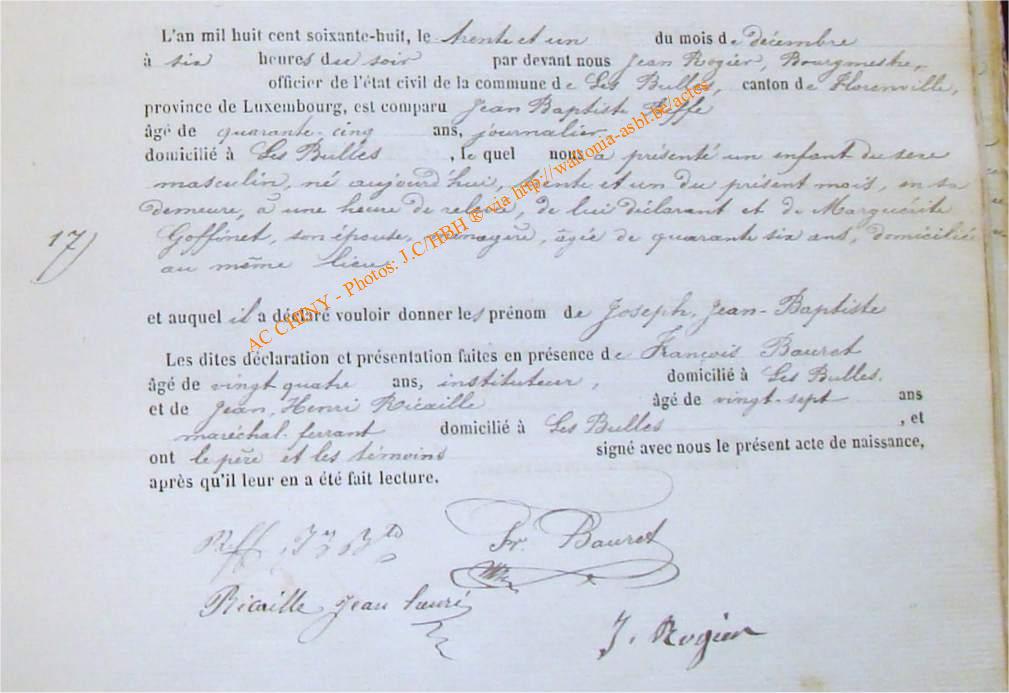 L'an mil huit cent soixante-huit, le trente et un du mois de décembre
à six heures du soir par devant nous Jean Rogier, Bourgmestre,
officier de l'état civil de la commune de Les Bulles, canton de Florenville,
province de Luxembourg, est comparu Jean Baptiste
âgé de quarante-cinq ans, journalier
domicilié à Les Bulles, le quel nous a présenté un enfant du sexe
masculin, né aujourd'hui, trente et un du présent mois, en sa
demeure, à une heure de relevée, de lui déclarant et de Marguerite
17) Goffinet, son épouse, ménagère, âgée de quarante six ans, domicilié
au même lieu
et auquel il a déclaré vouloir donner les prénom de Joseph, Jean-Baptiste
Les dites déclaration et présentation faites en présence de François Bauret
âgé de vingt quatre ans, instituteur, domicilié à Les Bulles.
et de Jean, Henri Ricaille âgé de vingt-sept ans
maréchal-ferrant domicilié à Les Bulles, et
ont le père et les témoins signé avec nous le présent acte de naissance,
après qu'il leur en a été fait lecture.
Fr. Bauret
Ricaille Jean henri
J. Rogier
AC CHINY - Photos: J.C/HBH ® via http://wallonia-asbl.be/actes